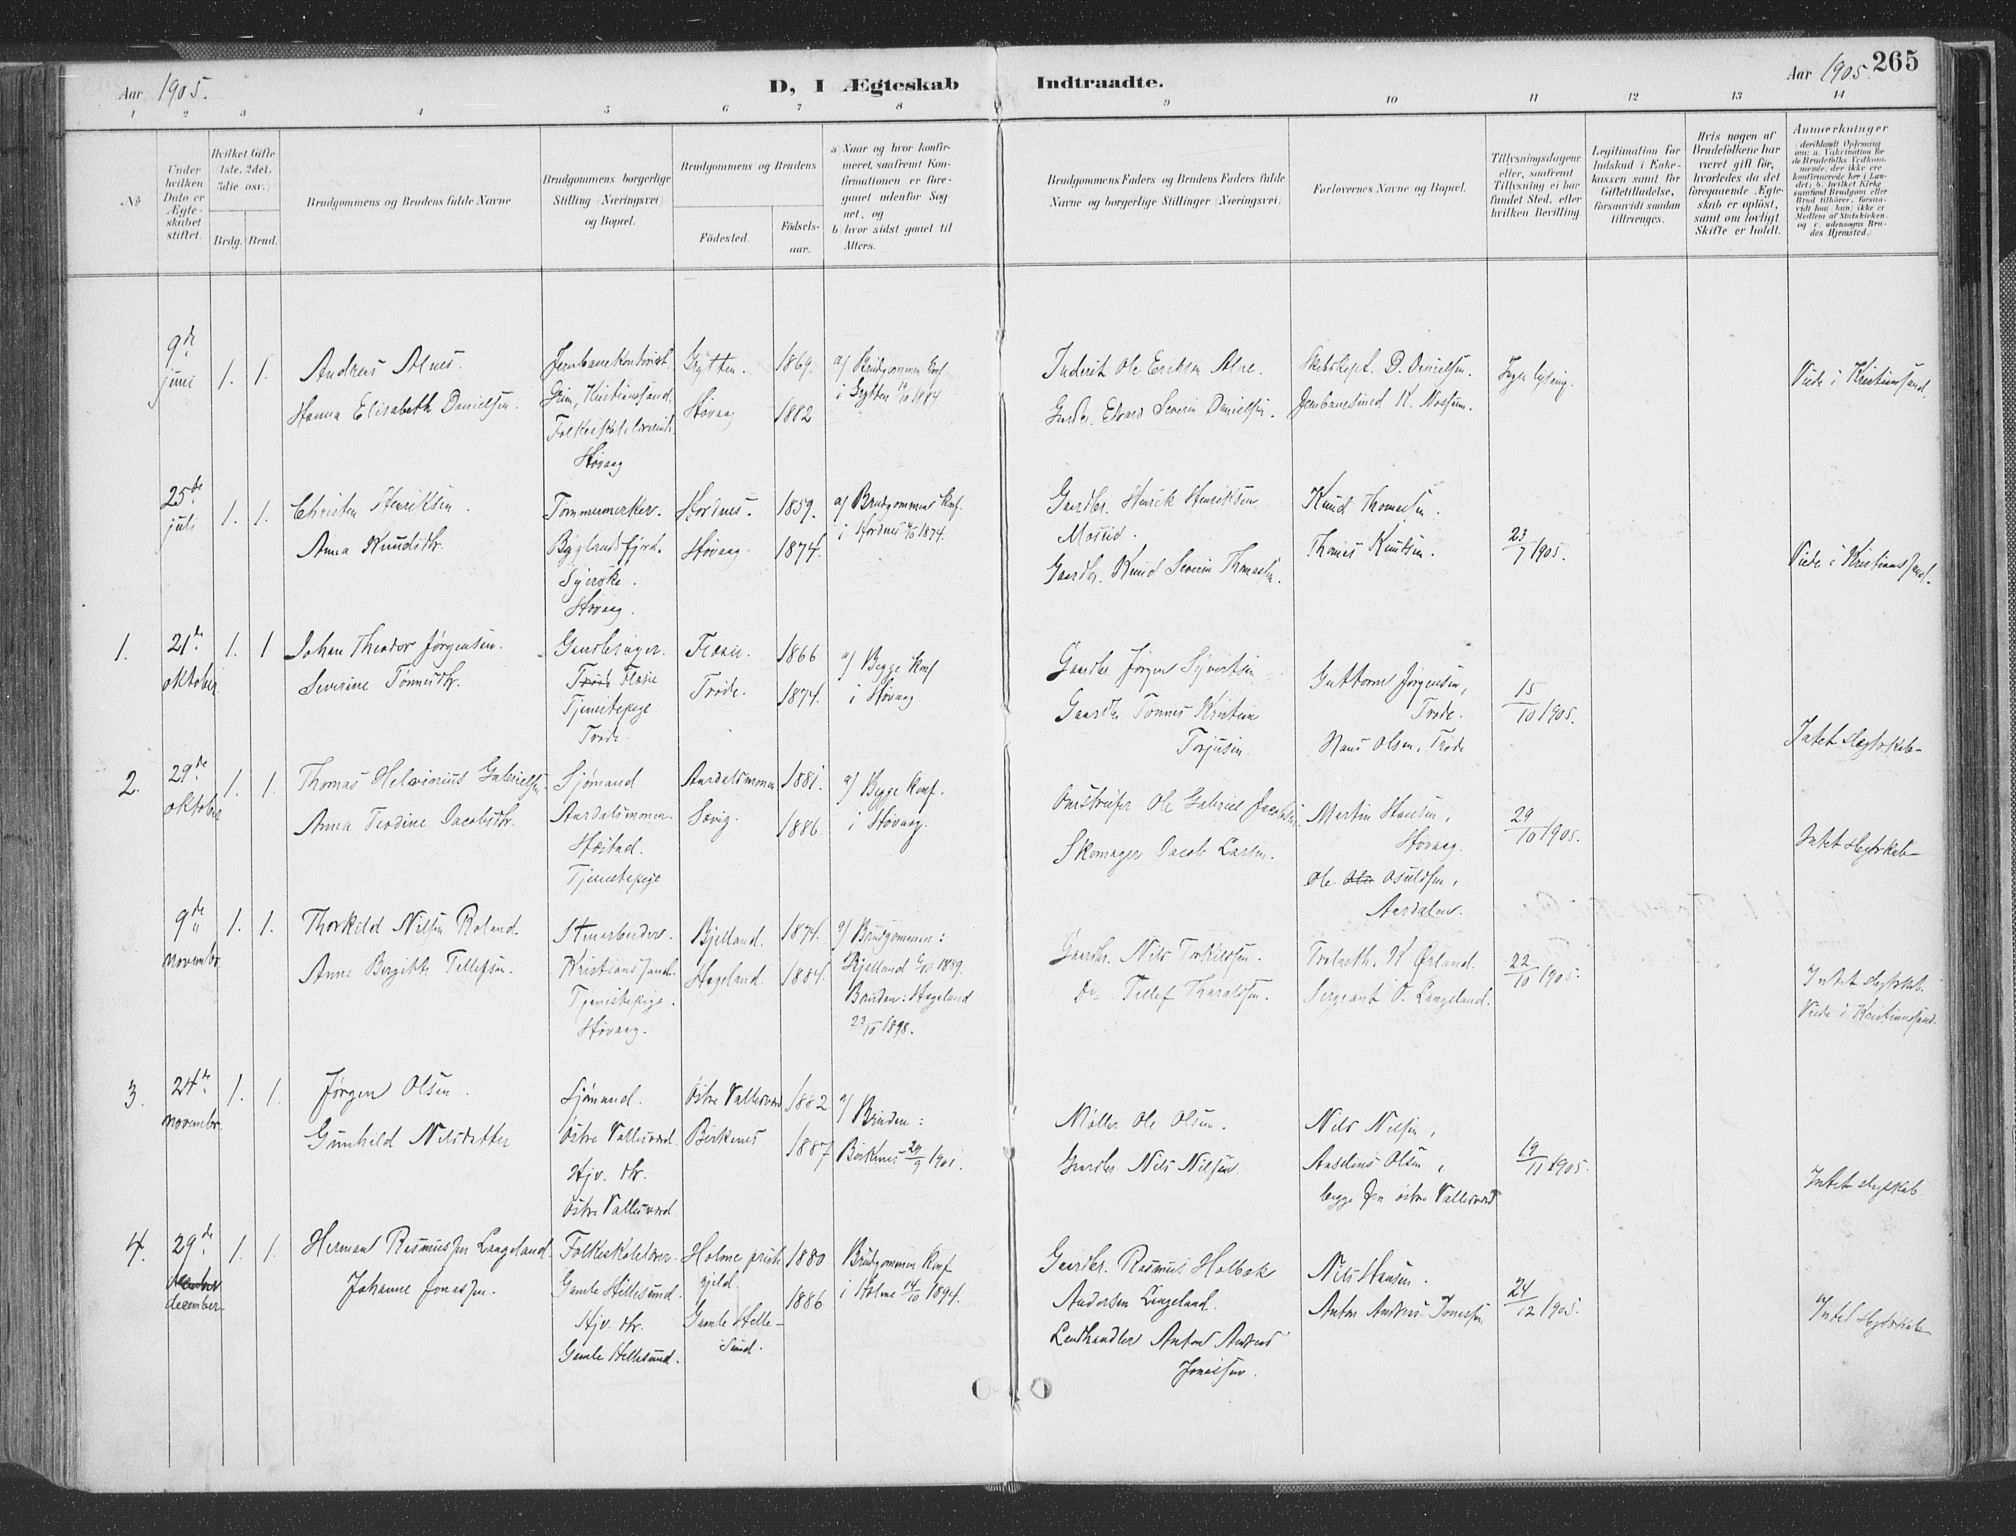 Aar 1905.
D, I Ægteskab Indtraadte.
Aar 1905. 265
1 2 3 4 5 6 7 8 9 10 11 12 13 14
No
Under hvilken Dato er Ægteskabet stiftet.
Hvilket Gifte 1ste. 2det. 3die osv.)
Brdg. Brud.
Brudgommens og Brudens fulde Navne
Brudgommens borgerlige Stilling (Næringsvei) og Bopæl.
Brudgommens og Brudens
Fødested. Fødsels-aar.
a Naar og hvor konfirmeret, saafremt Konfirmationen er foregaaet udenfor Sognet, og
b) hvor sidst gaaet til Alters.
Brudgommens Faders og Brudens Faders fulde Navne og borgerlige Stillinger (Næringsvei)
Forlovernes Navne og Bopæl.
Tillysningsdagene eller, saafremt Tillysning ei har fundet Sted, efter hvilken Bevilling
Legitimation for Indskud i Enkekassen samt for Giftetilladelse, forsaavidt saadan tiltrænges.
Hvis nogen af Brudefolkene har været gift før, hvorledes da det foregaaende Ægteskab er opløst, samt om lovligt Skifte er holdt.
Anmærkninger
(deriblandt Oplysning om: a. Vakcination for de Brudefolks Vedkommende, der ikke ere konfirmerede her i Landet; b. hvilket Kirkesamfund Brudgom eller Brud tilhører, forsaavidt han (hun) ikke er Medlem af Statskirken, og c. udensogns Brudes Hjemsted.
9de juni 1. 1.
Andreas Alnes
Hanna Elisabeth Danielsen.
Jernbanekontorist.
Grim, Kristianssand.
Høvaag
Grytten. 1869.
Høvaag 1882
a) Brudgommen Konf.
i Grytten 1884
Inderst Ole Eriksen Alne.
Gardbr. Edvard Severin Danielsen.
D. Danielsen.
Jernbanesmed K. Mossum.
Ingen lysning.
Viede i Kristianssand.
25de juli 1. 1.
Christen Henriksen.
Anna Knudsdtr.
Tømmermerker.
Byglandsfjord.
Syerske.
Høvaag.
Hordnes. 1859.
Høvaag 1874.
a) Brudgommens Konf.
i Hordnes 1874.
Gaardbr. Henrik Henriksen
Mosiid.
Gaardbr. Knud Severin Thomassen.
Knud Thomassen.
Thomas Knudsen.
23/7 1905.
Viede i Kristianssand.
1. 21de oktober 1. 1
Johan Theodor Jørgensen.
Severine Tønnesdtr.
Gaardbruger.
Trøde Fløsie
Tjenestepige
Trøde.
Fløsie. 1866
Trøde. 1874.
a) Begge Konf
i Høvaag.
Gaardbr. Jørgen Syvertsen
Gaardbr. Tønnes Kristian
Torjusen.
Guttorm Jørgensen,
Trøde.
Hans Olsen, Trøde
15/10 1905.
Intet slegtskab-
2. 29de oktober 1. 1.
Thomas Helvinius Gabrielsen
Anna Teodine Jacobsdtr.
Sjømand
Aardalsmoner.
Høstad.
Tjenestepige
Aardalsmonen 1881.
Sævig. 1886.
a) Begge Konf.
i Høvaag.
Ole Gabriel Jacobsen.
Skomager Jacob Larsen.
Martin Hansen,
Høvaag.
Ole Olsen Osuldsen,
Aardalen.
29/10 1905.
Intet slegtskab-
9de novembr. 1. 1.
Thorkild Nilsen Roland
Anne Bergitte Tellefsen.
Stenarbeider.
Kristianssand.
Tjenestepige.
Høvaag.
Bjelland. 1874.
Hægeland. 1884.
a) Brudgommen:
Bjelland 1889.
Bruden: Hægeland
23/10 1898.
Gaardbr. Nils Torkildsen.
Do - Tellef Tharaldsen.
K. Ørland.
Sergeant O. Langeland.
22/10 1905.
Intet slegtskab.
Viede i Kristianssand.
3. 24de novembr. 1. 1.
Jørgen Olsen.
Gunhild Nilsdatter
Sjømand.
Østre Vallesverd.
Hjv. dtr.
Østre Vallesverd.
Østre Vallesverd 1882
Birkenes 1887
a) Bruden:
Birkenes 29/9 1901.
Møller Ole Olsen.
Gaardbr Nils Nilsen.
Nils Nilsen,
Anselius Olsen,
begge Øen østre Vallesverd
19/11 1905.
Intet slegtskab
4. 29de december december- 1. 1.
Herman Rasmussen Langeland.
Johanne Jonassen.
Folkeskolelærer
Gamle Hellesund.
Hjv. dtr.
Gamle Hellesund.
Holme preste
gjeld 1880
Gamle Helle-
sund. 1886
Brudgommen Konf
i Holme 14/10 1894.
Gaardbr. Rasmus Holbæk
Andersen Langeland.
Landhandler Anton Andreas
Jonassen.
Nils Hansen.
Anton Andreas Jonassen
24/12 1905.
Intet slegtskab-